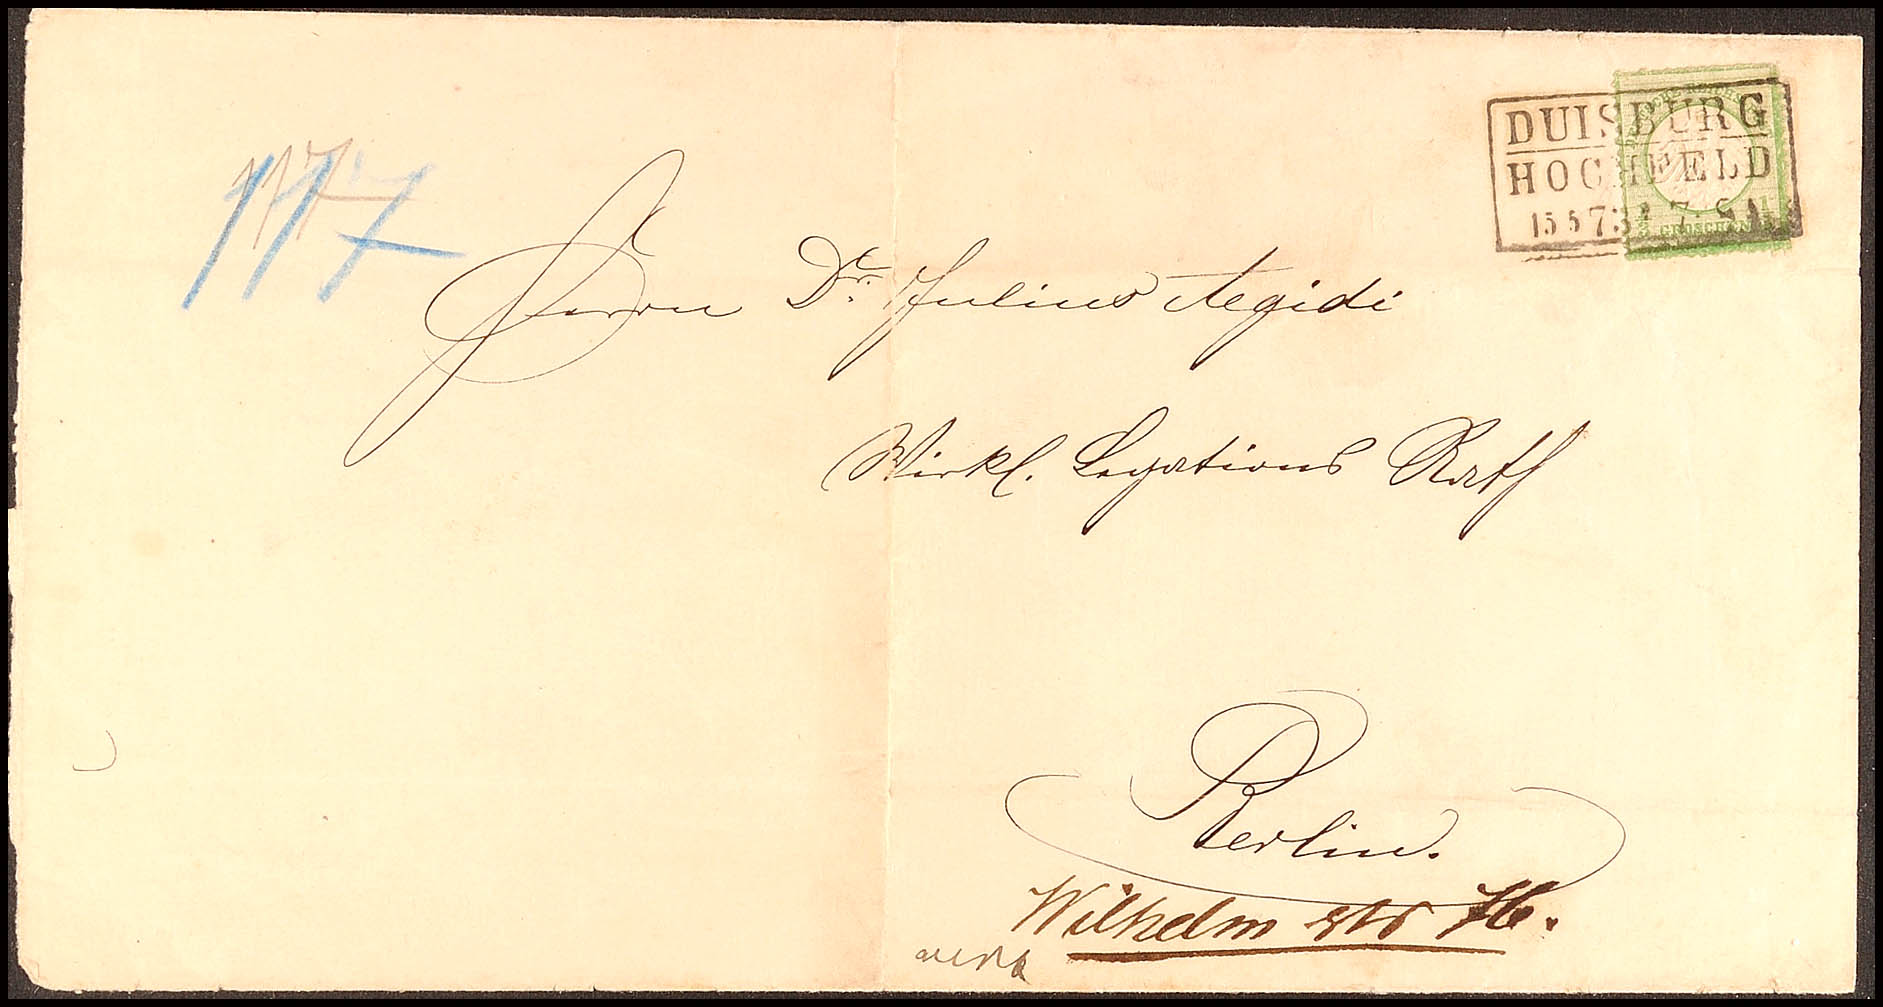 117
DUISBURG
HOCHFELD
15 5 73 * 7-8 N.
1/3 GROSCHEN 1/3
Herrn Dr. Julius Aegidi
Wirkl. Legations Rath
Berlin.
Wilhelm str 76.